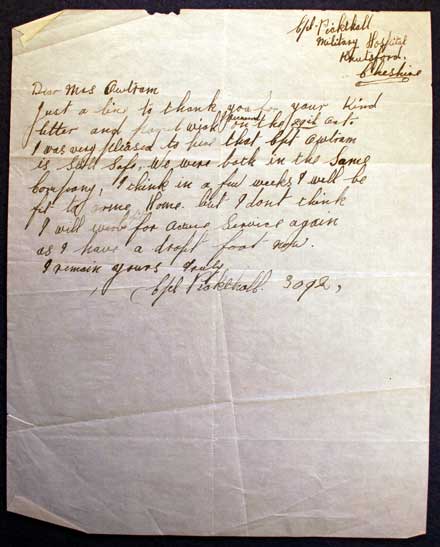 Cpl Pickthall
Military Hospital
Knutsford.
Cheshire
Dear Mrs Owtram
Just a line to thank you for your kind
letter and
I was very pleased to hear that Cpt Owtram
is Still Safe. We were both in the Same
Company, I think in a few weeks I will be
fit to come Home. but I dont think
I will for Active Service again
as I have a dropt foot now.
I remain yours Truly
Cpl Pickthall. 3092,